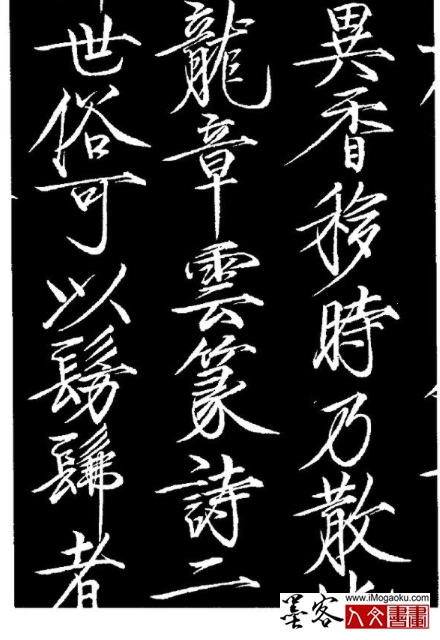 異香移時乃散
龍章雲篆詩二
世俗可以髣髴者
www.iMogaoku.com
墨客
人文書畫